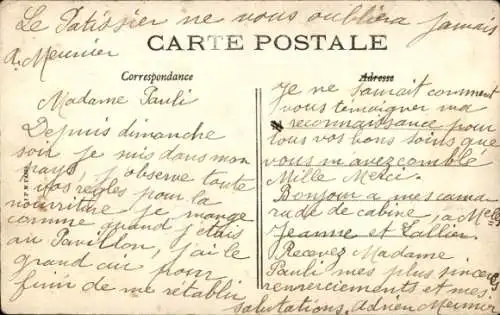 Le Patissier ne vous oubliera jamais
A. Meunier
CARTE POSTALE
Correspondance
Adresse
Madame Pauli
Depuis dimanche
soir je suis dans mon
pays, j'observe toute
vos règles pour la
nourriture je mange
comme quand j'étais
au Pavillon, j'ai le
grand air pour
finir de me rétablir
Je ne saurait comment
vous témoigner ma
reconnaissance pour
tous vos bons soins que
vous m'avez comblé
Mille Merci.
Bonjour a mes cama
rade de cabine, a Melles
Jeanne et Lallier.
Recevez Madame
Pauli mes plus sincères
remerciements et mes
salutations. Adrien Meunier